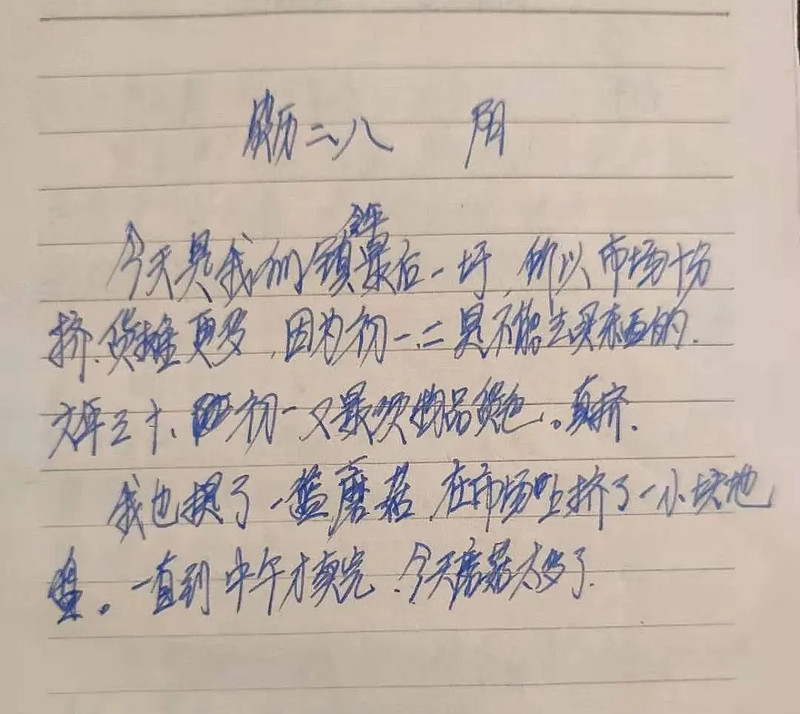 腊历二八 阴
今天是我们镇全年最后一圩,所以市场十分
挤.货摊更多,因为初一.二是不能去买东西的.
大年三十、初一又最 物品货色。真挤.
我也提了一篮磨菇,在市场 挤了一小块地
盘。一直到中午才卖完.今天磨菇太多了.